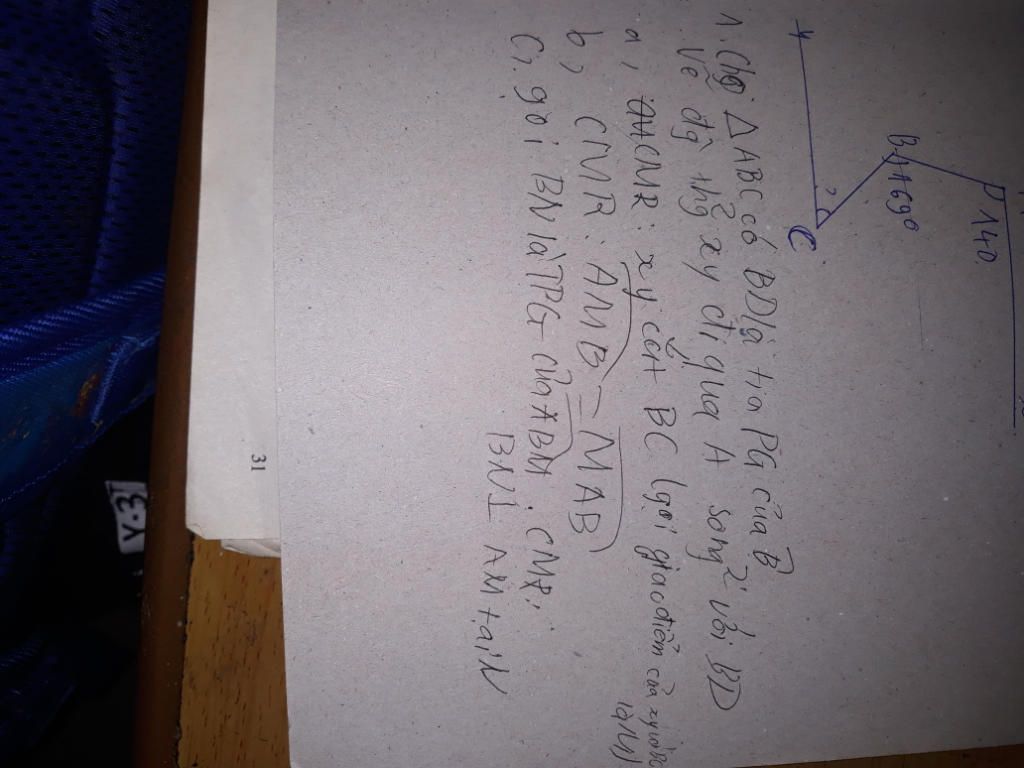 D 140
B 169°
?
C
y
1. Cho △ABC có BD là tia PG của B
Vẽ đg thẳng xy đi qua A song² với BD
a, CMR: xy cắt BC (gọi giao điểm của xy với BC
là M)
b, CMR: AMB = MAB
C, gọi BN là TPG của ABM. CMR:
BN⊥ AM tại N
31
Y-3